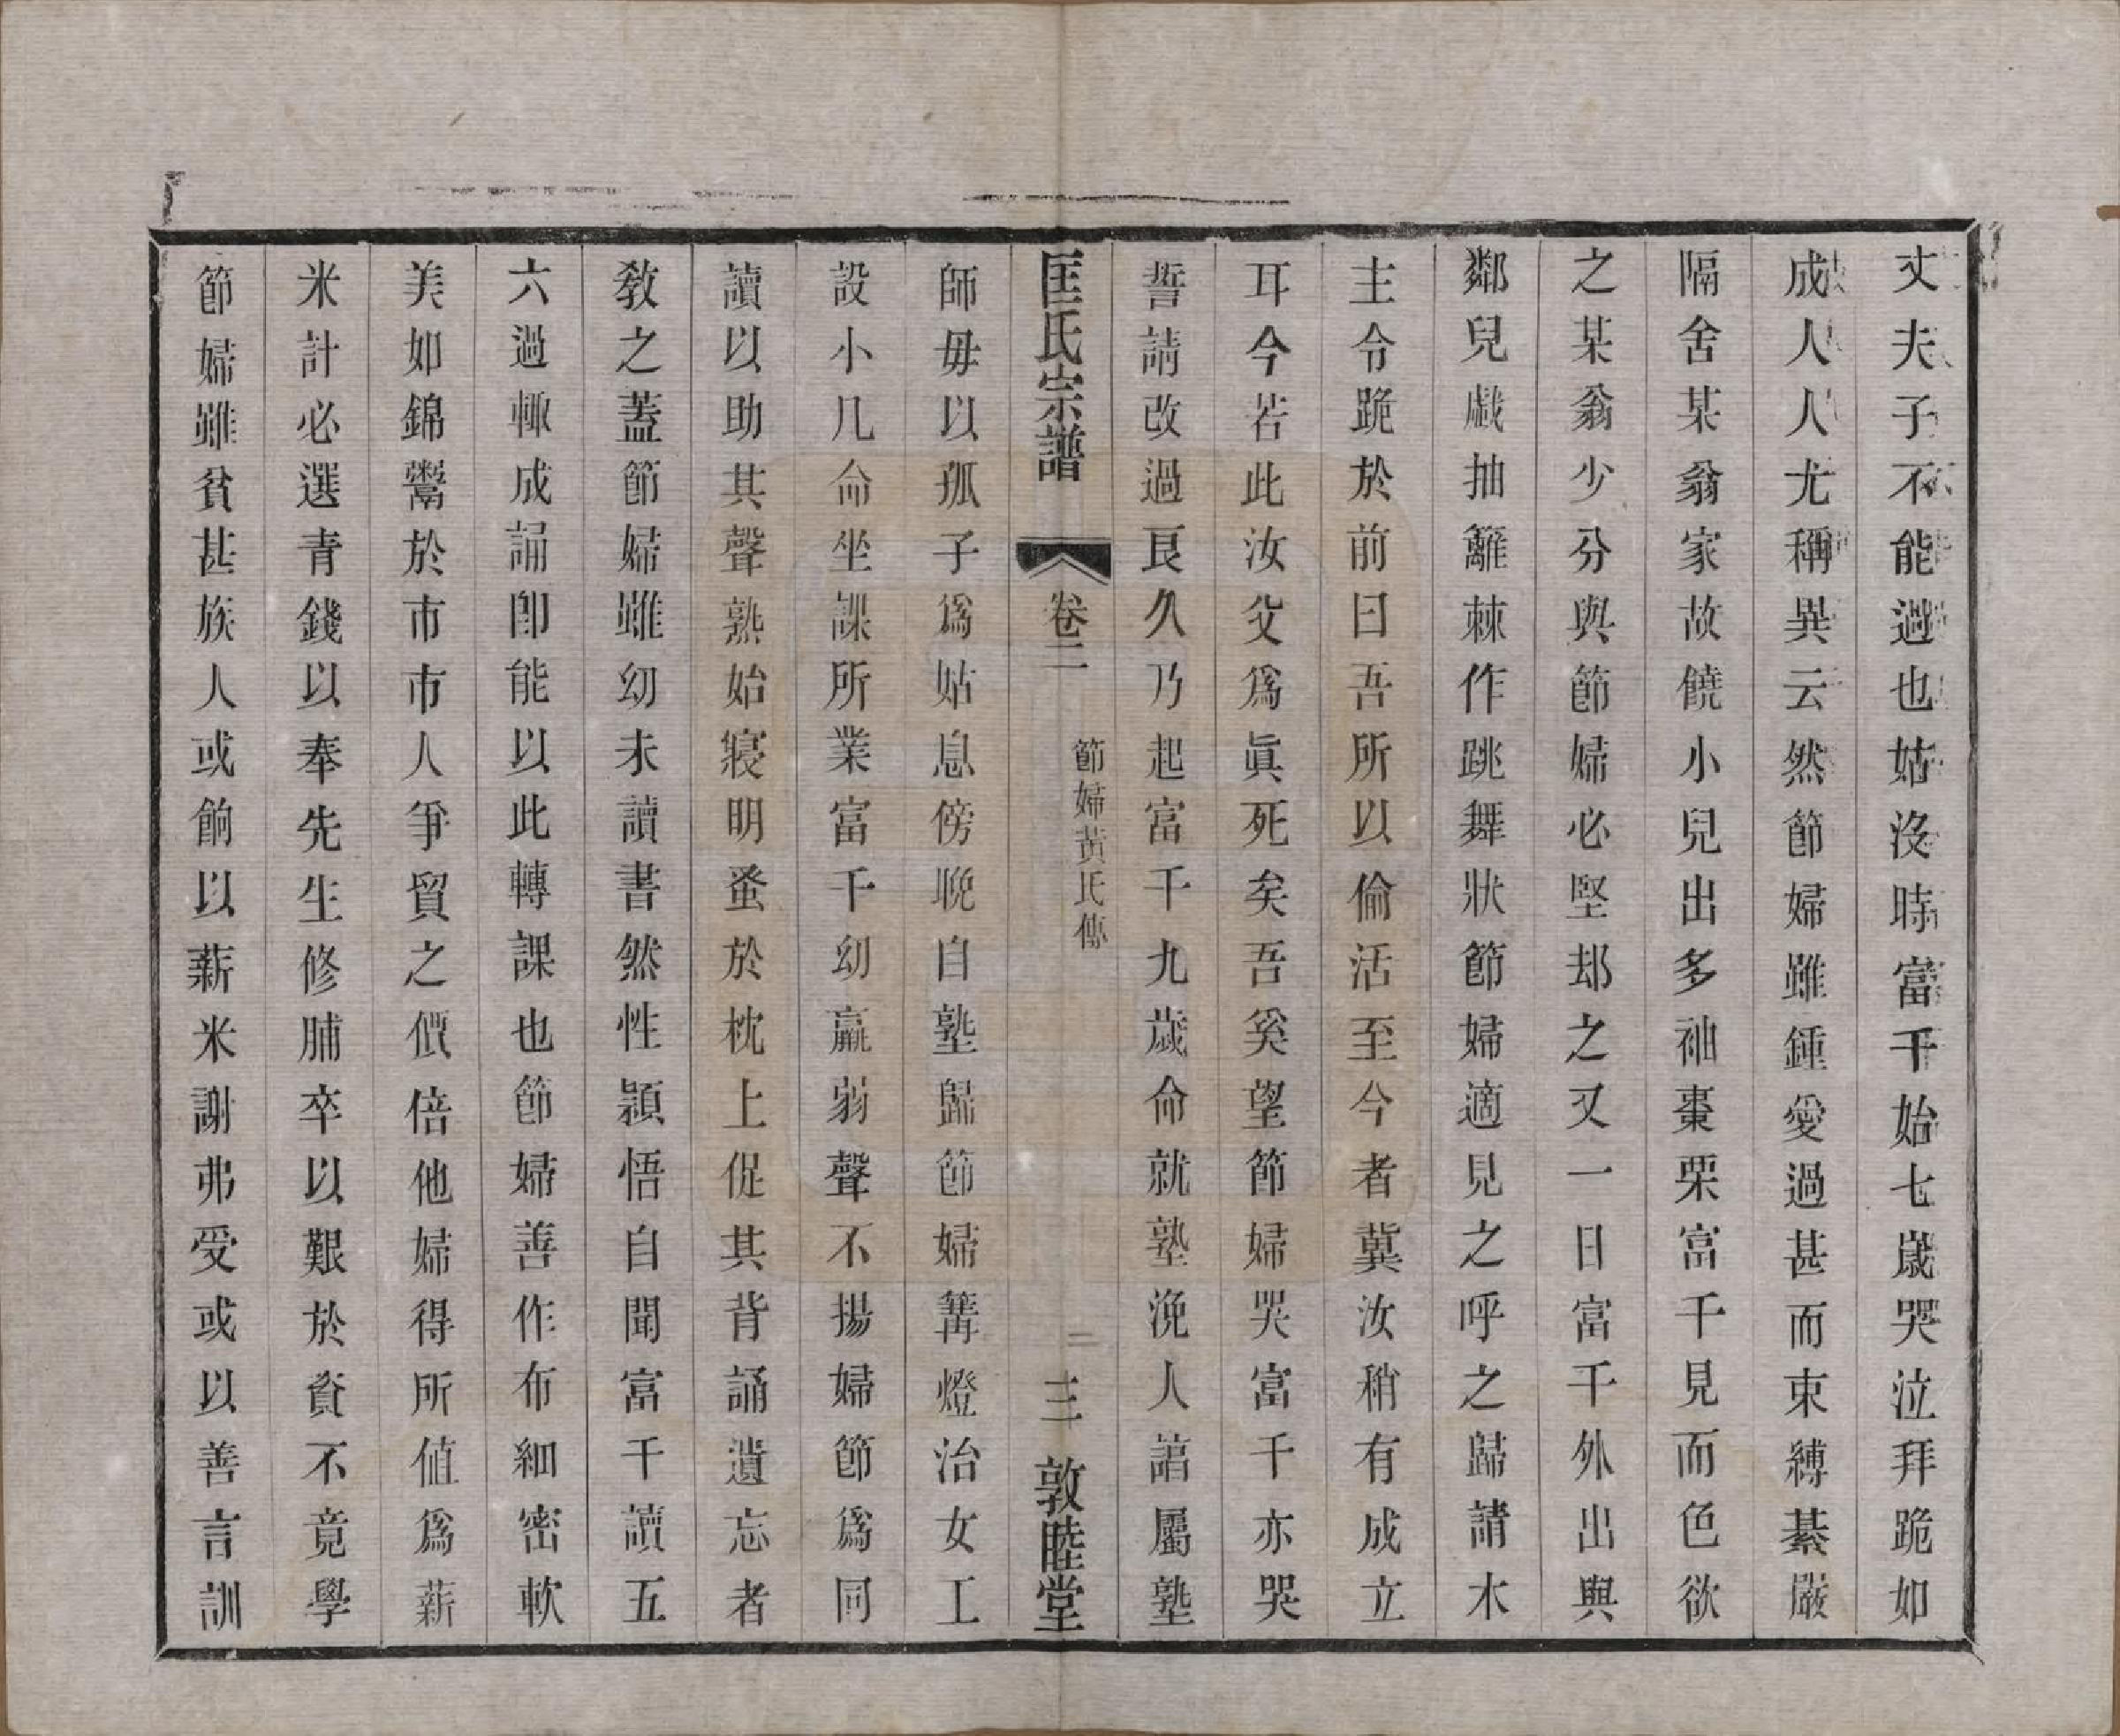 丈夫子不能過也姑沒時富千始七歲哭泣拜跪如
成人人尤稱異云然節婦雖鍾愛過甚而束縛綦嚴
隔舍某翁家故饒小兒出多袖棗栗富千見而色欲
之某翁少分與節婦必堅却之又一日富千外出與
鄰兒戲抽籬棘作跳舞狀節婦適見之呼之歸請木
主令跪於前曰吾所以偷活至今者冀汝稍有成立
耳今若此汝父爲眞死矣吾奚望節婦哭富千亦哭
誓請改過良久乃起富千九歲命就塾浼人諳屬塾
匡氏宗譜 卷二 節婦黃氏傳 三 敦睦堂
師毋以孤子爲姑息傍晚自塾歸節婦篝燈治女工
設小几命坐課所業富千幼羸弱聲不揚婦節爲同
讀以助其聲熟始寢明蚤於枕上促其背誦遺忘者
敎之蓋節婦雖幼未讀書然性穎悟自聞富千讀五
六過輒成誦卽能以此轉課也節婦善作布細密軟
美如錦鬻於市市人爭貿之價倍他婦得所値爲薪
米計必選青錢以奉先生修脯卒以艱於資不竟學
節婦雖貧甚族人或餉以薪米謝弗受或以善言訓